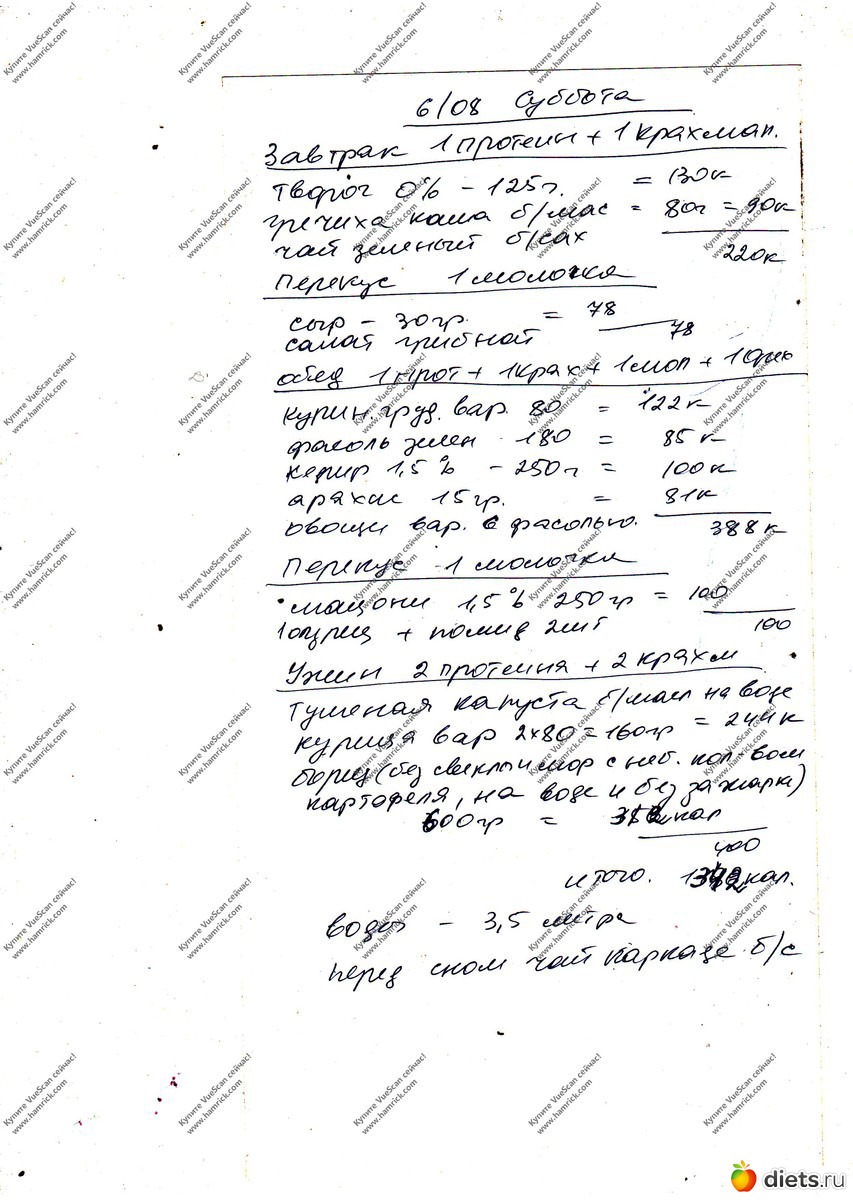 6/08 Суббота
Завтрак 1 протеин + 1 крахмал.
творог 0% - 125 г. = 130 к
гречиха каша б/мас = 80г = 90к
чай зеленый б/сах
220к
Перекус 1 молочка
сыр - 30 гр. = 78
78
салат грибной
обед 1 прот + 1 крах + 1 мол +
курин. груд. вар. 80 = 122 к
фасоль зелен 180 = 85 к
кефир 1,5% - 250 г = 100 к
арахис 15 гр. = 81 к
овощи вар. с фасолью.
388 к
Перекус 1 молочка
мацони 1,5% 250 гр = 100
1 огурец + помид 2шт
100
Ужин 2 протеина + 2 крахм
Тушеная капуста б/масл на воде
курица вар 2x80=160гр = 244 к
борщ (без свеклы и мор с неб. кол-вом
картофеля, на воде и без зажарки)
600гр = кал
400
итого. кал.
воды - 3,5 литра
перед сном чай каркаде б/с
Купите VueScan сейчас!
www.hamrick.com
diets.ru